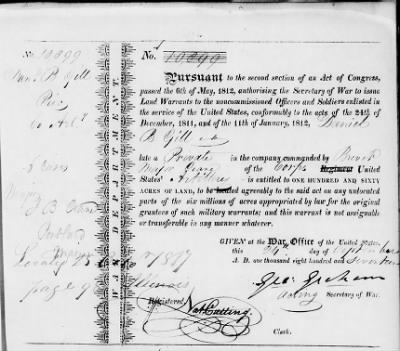 No. 10099
No. 10099
B Gill
PURSUANT to the second section of an Act of Congress,
passed the 6th of May, 1812, authorising the Secretary of War to issue
Land Warrants to the noncommissioned Officers and Soldiers enlisted in
the service of the United States, conformably to the acts of the 24th of
December, 1811, and the 11th of January, 1812, Daniel
B Gill
late a Private in the company commanded by Brevet
Major of the Corps Regiment United
States' Artillery is entitled to ONE HUNDRED AND SIXTY
ACRES OF LAND, to be located agreeably to the said act on any unlocated
parts of the six millions of acres appropriated by law for the original
grantees of such military warrants; and this warrant is not assignable
or transferable in any manner whatever.
WAR DEPARTMENT.
GIVEN at the War Office of the United States,
this day of
A. D. one thousand eight hundred and
Geo: Graham
acting Secretary of War.
Registered
Nat Cutting.
Clerk.